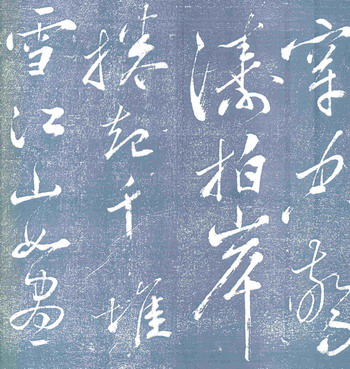 穿空驚
濤拍岸
捲起千堆
雪江山如畫